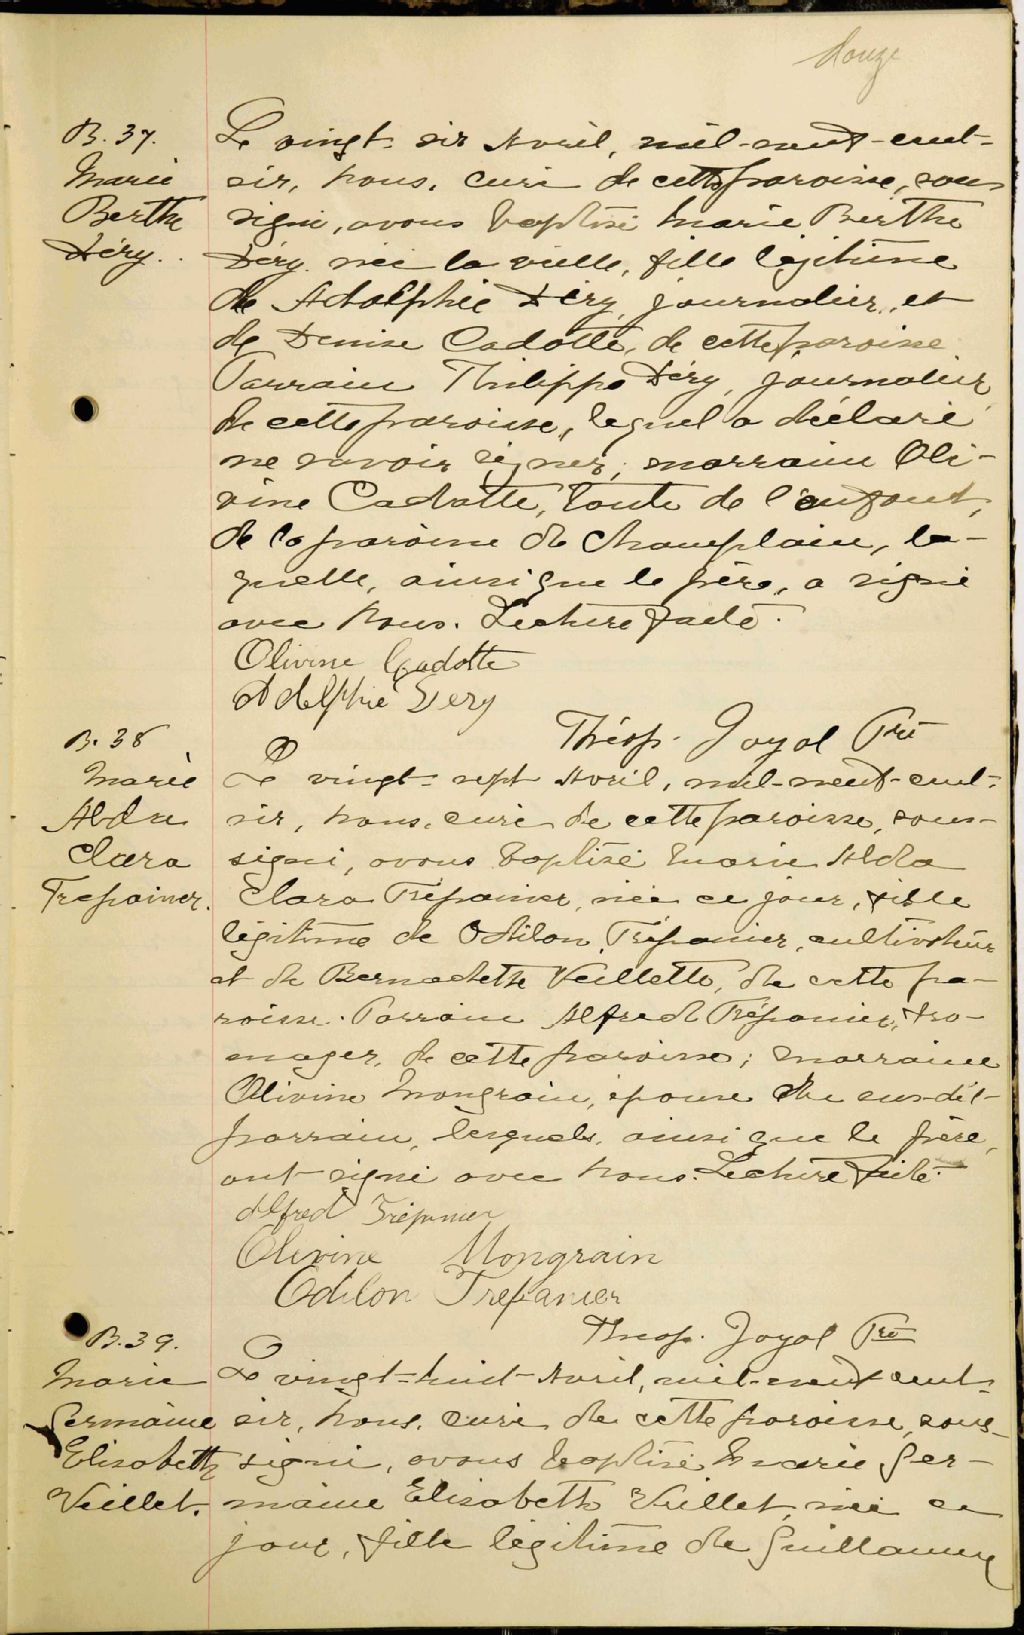 Douze
B. 37.
Marie
Berthe
Déry.
Le vingt-six Avril, mil-neuf-cent-
six, nous, curé de cette paroisse, sous
signé, avons baptisé Marie Berthe
Déry née la veille, fille légitime
de Adolphie Déry, journalier, et
de Denise Cadotte, de cette paroisse
Parrain Philippe Déry, journalier
de cette paroisse, lequel a déclaré
ne savoir signer; marraine Oli-
vine Cadotte, tante de l'enfant,
de la paroisse de Champlain, la-
quelle, ainsi que le père, a signé
avec nous. Lecture faite.
Olivine Cadotte
Adelphie Dery
Théop. Joyal Ptre
B. 38
Marie
Alda
Clara
Trépanier.
Le vingt-sept Avril, mil-neuf-cent-
six, nous, curé de cette paroisse, sous-
signé, avons baptisé Marie Alda
Clara Trépanier, née ce jour, fille
légitime de Odilon Trépanier, cultivateur
et de Bernadette Veillette, de cette pa-
roisse. Parrain Alfred Trépanier, fro-
mager, de cette paroisse; marraine
Olivine Mongrain, épouse du susdit
parrain, lesquels, ainsi que le père,
ont signé avec nous. Lecture faite.
Alfred Trépanier
Olivine Mongrain
Odilon Trepanier
Theop. Joyal Ptre
B. 39.
Marie
Germaine
Elisabeth
Veillet.
Le vingt-huit Avril, mil-neuf cent-
six, nous, curé de cette paroisse, sous-
signé, avons baptisé Marie Ger-
maine Elisabeth Veillet, née ce
jour, fille légitime de Guillaume